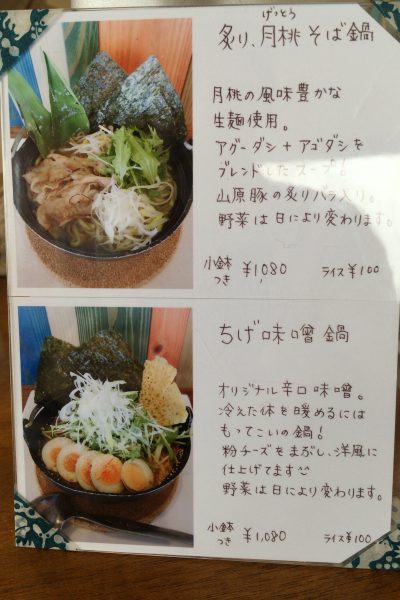 げっとう
炙り、月桃そば鍋
月桃の風味豊かな
生麺使用。
アグーダシ+アゴダシを
ブレンドしたスープ!
山原豚の炙りバラ入り。
野菜は日により変わります。
小鉢つき ¥1,080 ライス¥100
ちげ味噌鍋
オリジナル辛口味噌。
冷えた体を暖めるには
もってこいの鍋!
粉チーズをまぶし、洋風に
仕上げてます
野菜は日により変わります。
小鉢つき ¥1,080 ライス¥100